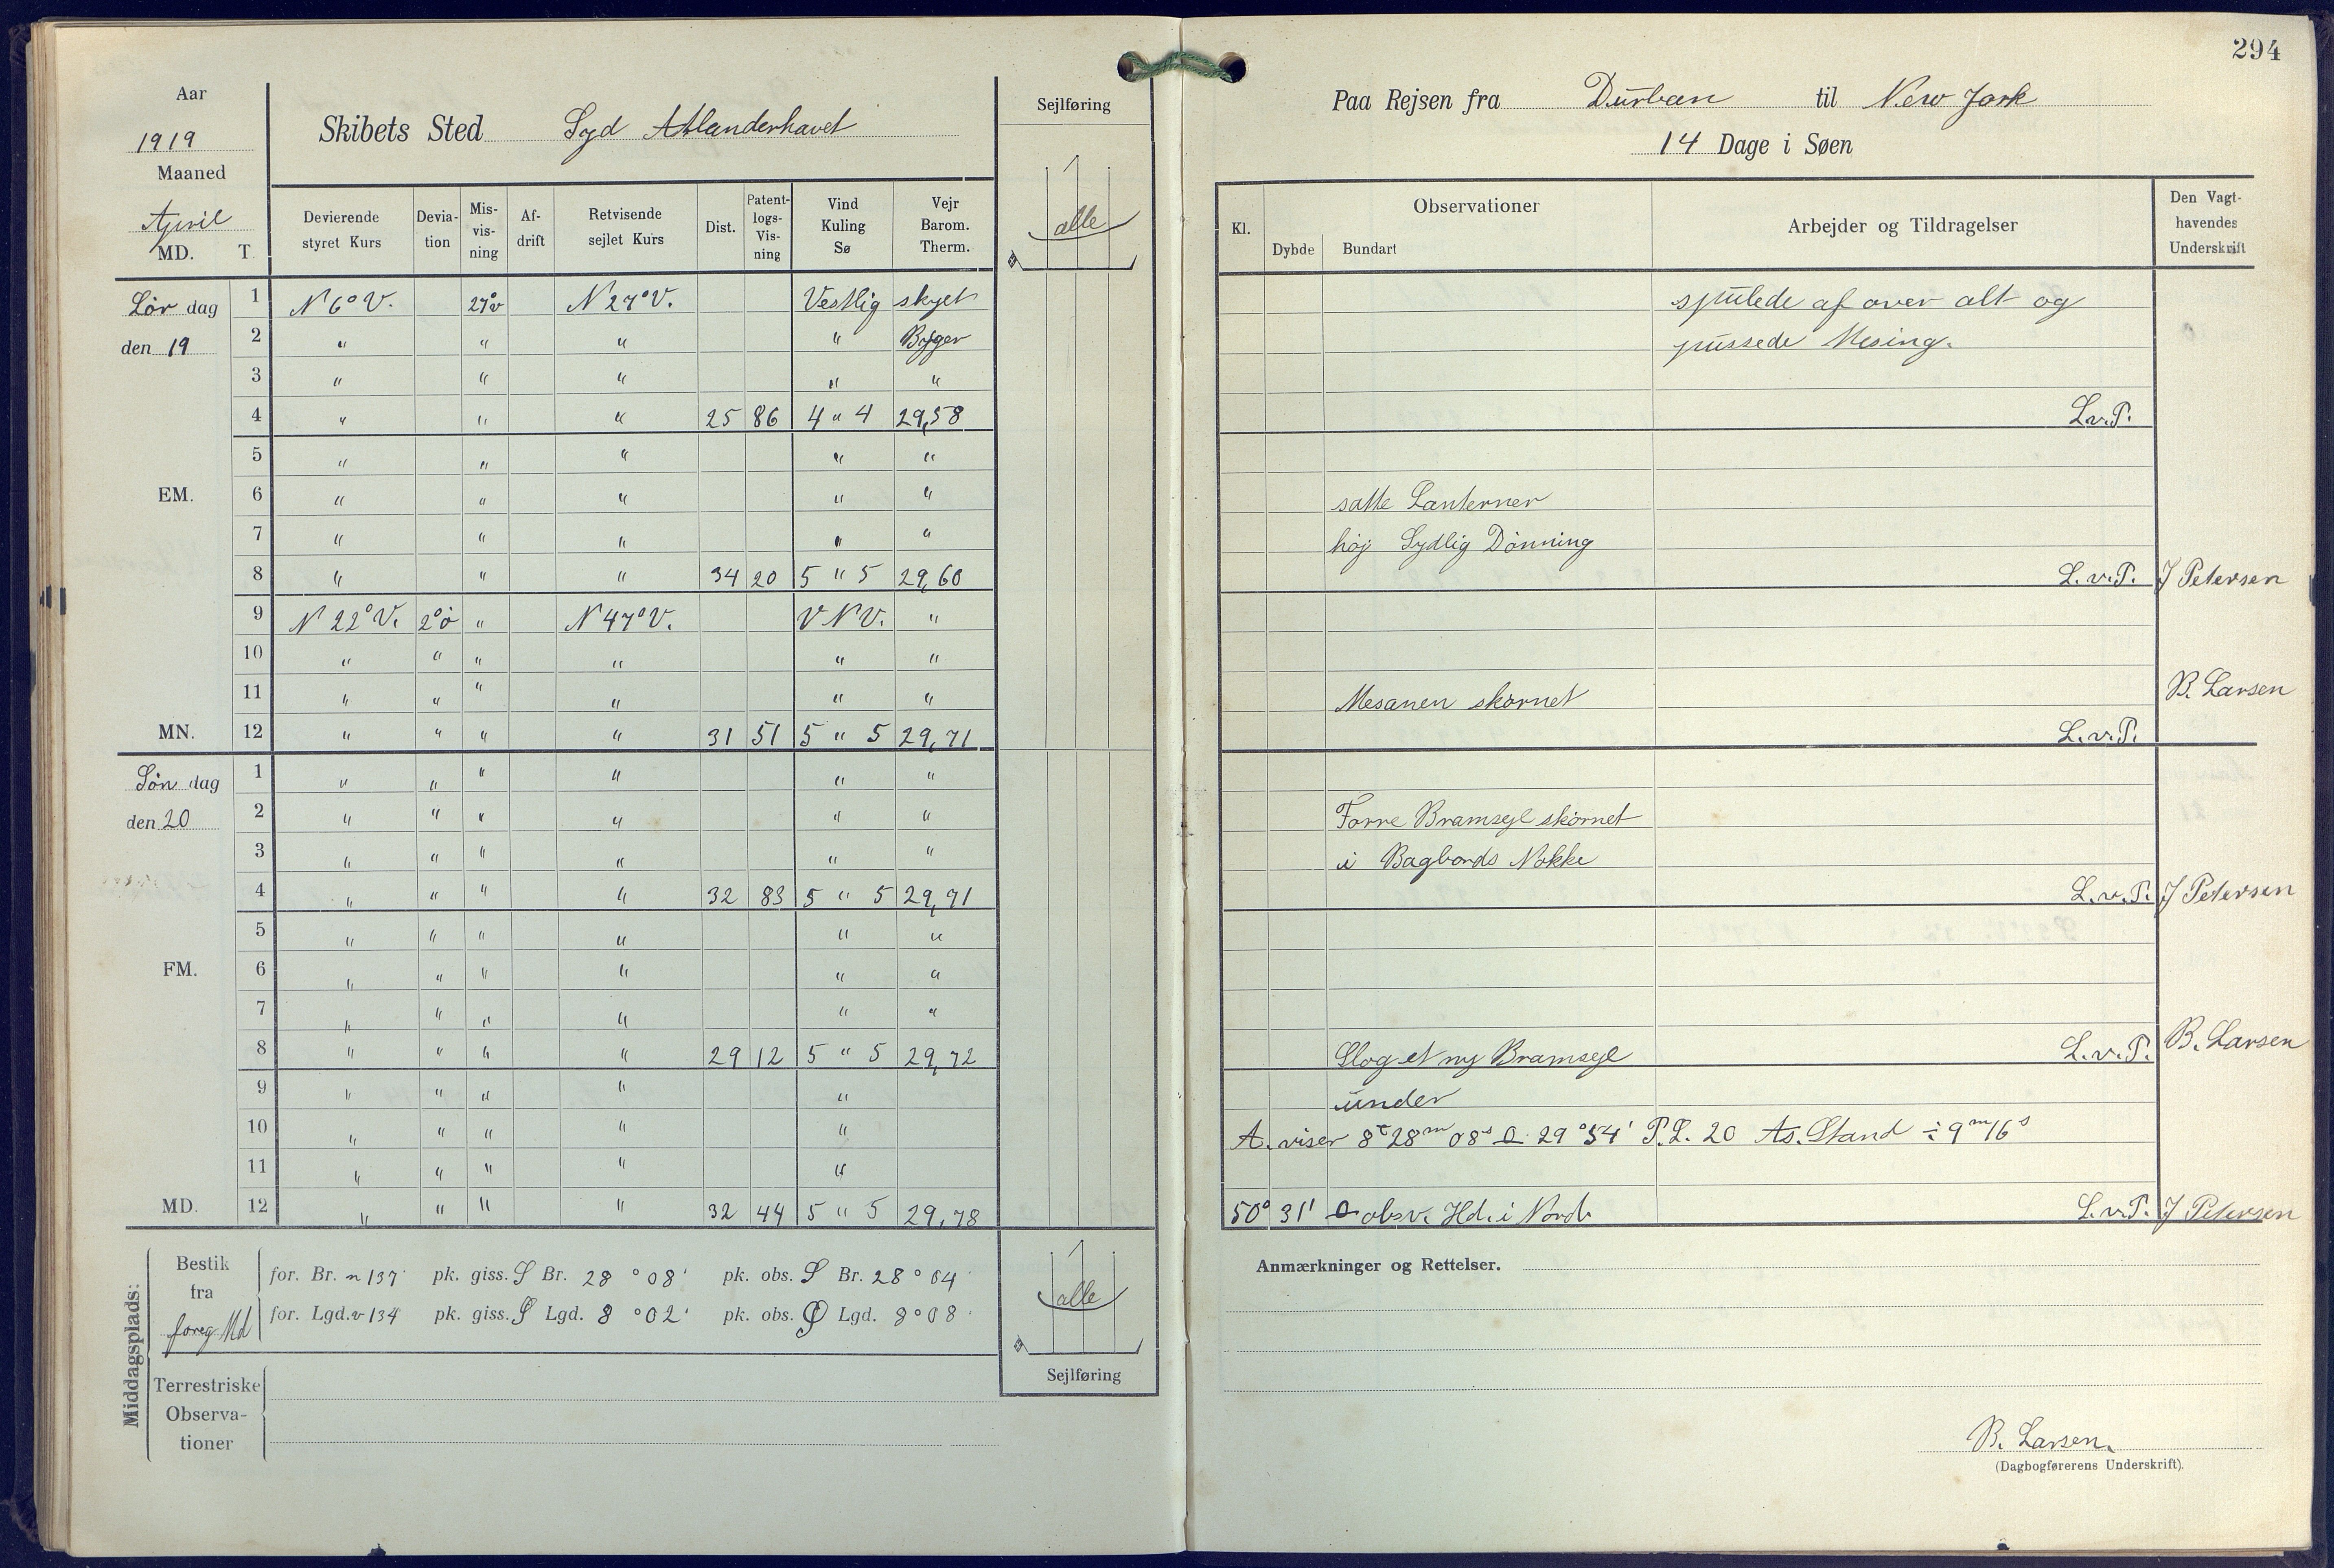 294
Aar
1919
Maaned
April
MD. T.
Skibets Sted Syd Atlanderhavet
Sejlføring
alle
Paa Rejsen fra Durban til New Jork
14 Dage i Søen
Devierende styret Kurs
Devia- tion
Mis- vis- ning
Af- drift
Retvisende sejlet Kurs
Dist.
Patent- logs- Vis- ning
Vind Kuling Sø
Vejr Barom. Therm.
Kl.
Observationer
Dybde Bundart
Arbejder og Tildragelser
Den Vagt- havendes Underskrift
Lör dag 1 N 6° V. 27°v N 27° V. Vestlig skyet spulede af over alt og
den 19 2 " " " " Byger pussede Mesing.
3 " " " " "
4 " " " 25 86 4 " 4 29,58 L.v.P.
5 " " " " "
EM. 6 " " " " " satte Lanterner
7 " " " " " høj Sydlig Dönning
8 " " " 34 20 5 " 5 29,60 L.v.P. J Petersen
9 N 22° V. 2°ö " N 47° V. V N V. "
10 " " " " " "
11 " " " " " " Mesanen skörnet B. Larsen
MN. 12 " " " " 31 51 5 " 5 29,71 L.v.P.
Sön dag 1 " " " " " "
den 20 2 " " " " " " Forre Bramsejl skörnet
3 " " " " " " i Bagbords Nokke
4 " " " " 32 83 5 " 5 29,71 L.v.P. J Petersen
5 " " " " " "
FM. 6 " " " " " "
7 " " " " " "
8 " " " " 29 12 5 " 5 29,72 Slog et ny Bramsejl L.v.P. B. Larsen
9 " " " " " under
10 " " " " " A. viser 8t 28m 08s 29° 54' P.L. 20 As. Stand ÷ 9m 16s
11 " " " " "
MD. 12 " " " " 32 44 5 " 5 29,78 50° 31' obsv. Hd. i Nord. L.v.P. J Petersen
Middagsplads:
Bestik fra foreg Md
for. Br. n 137' pk. giss. S Br. 28° 08' pk. obs. S Br. 28° 04'
for. Lgd. v 134 pk. giss. Ø Lgd. 8° 02' pk. obs. Ø Lgd. 8° 08'
alle
Sejlføring
Terrestriske Observa- tioner
Anmærkninger og Rettelser.
B. Larsen.
(Dagbogførerens Underskrift).